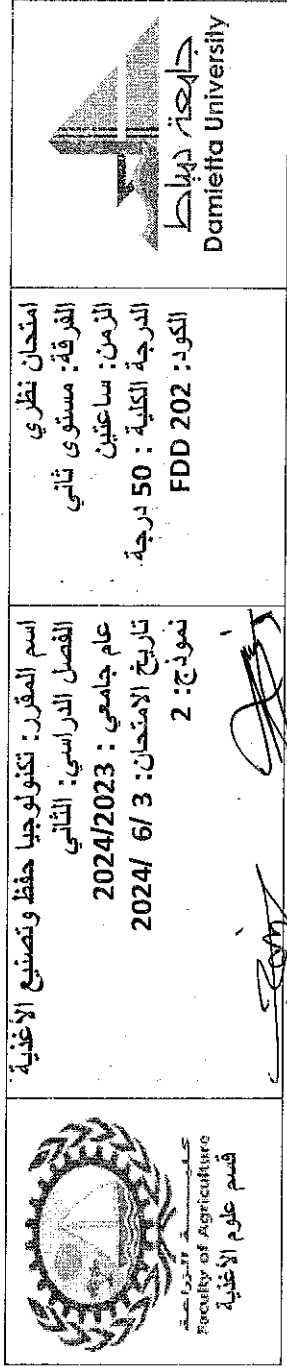 جامعة دمياط
Damietta University
امتحان نظري
الفرقة: مستوى ثاني
الزمن: ساعتين
الدرجة الكلية : 50 درجة
الكود: FDD 202
اسم المقرر: تكنولوجيا حفظ وتصنيع الأغذية
الفصل الدراسي: الثاني
عام جامعي : 2024/2023
تاريخ الامتحان: 3 /6 /2024
نموذج: 2
كلية الزراعة
Faculty of Agriculture
قسم علوم الأغذية